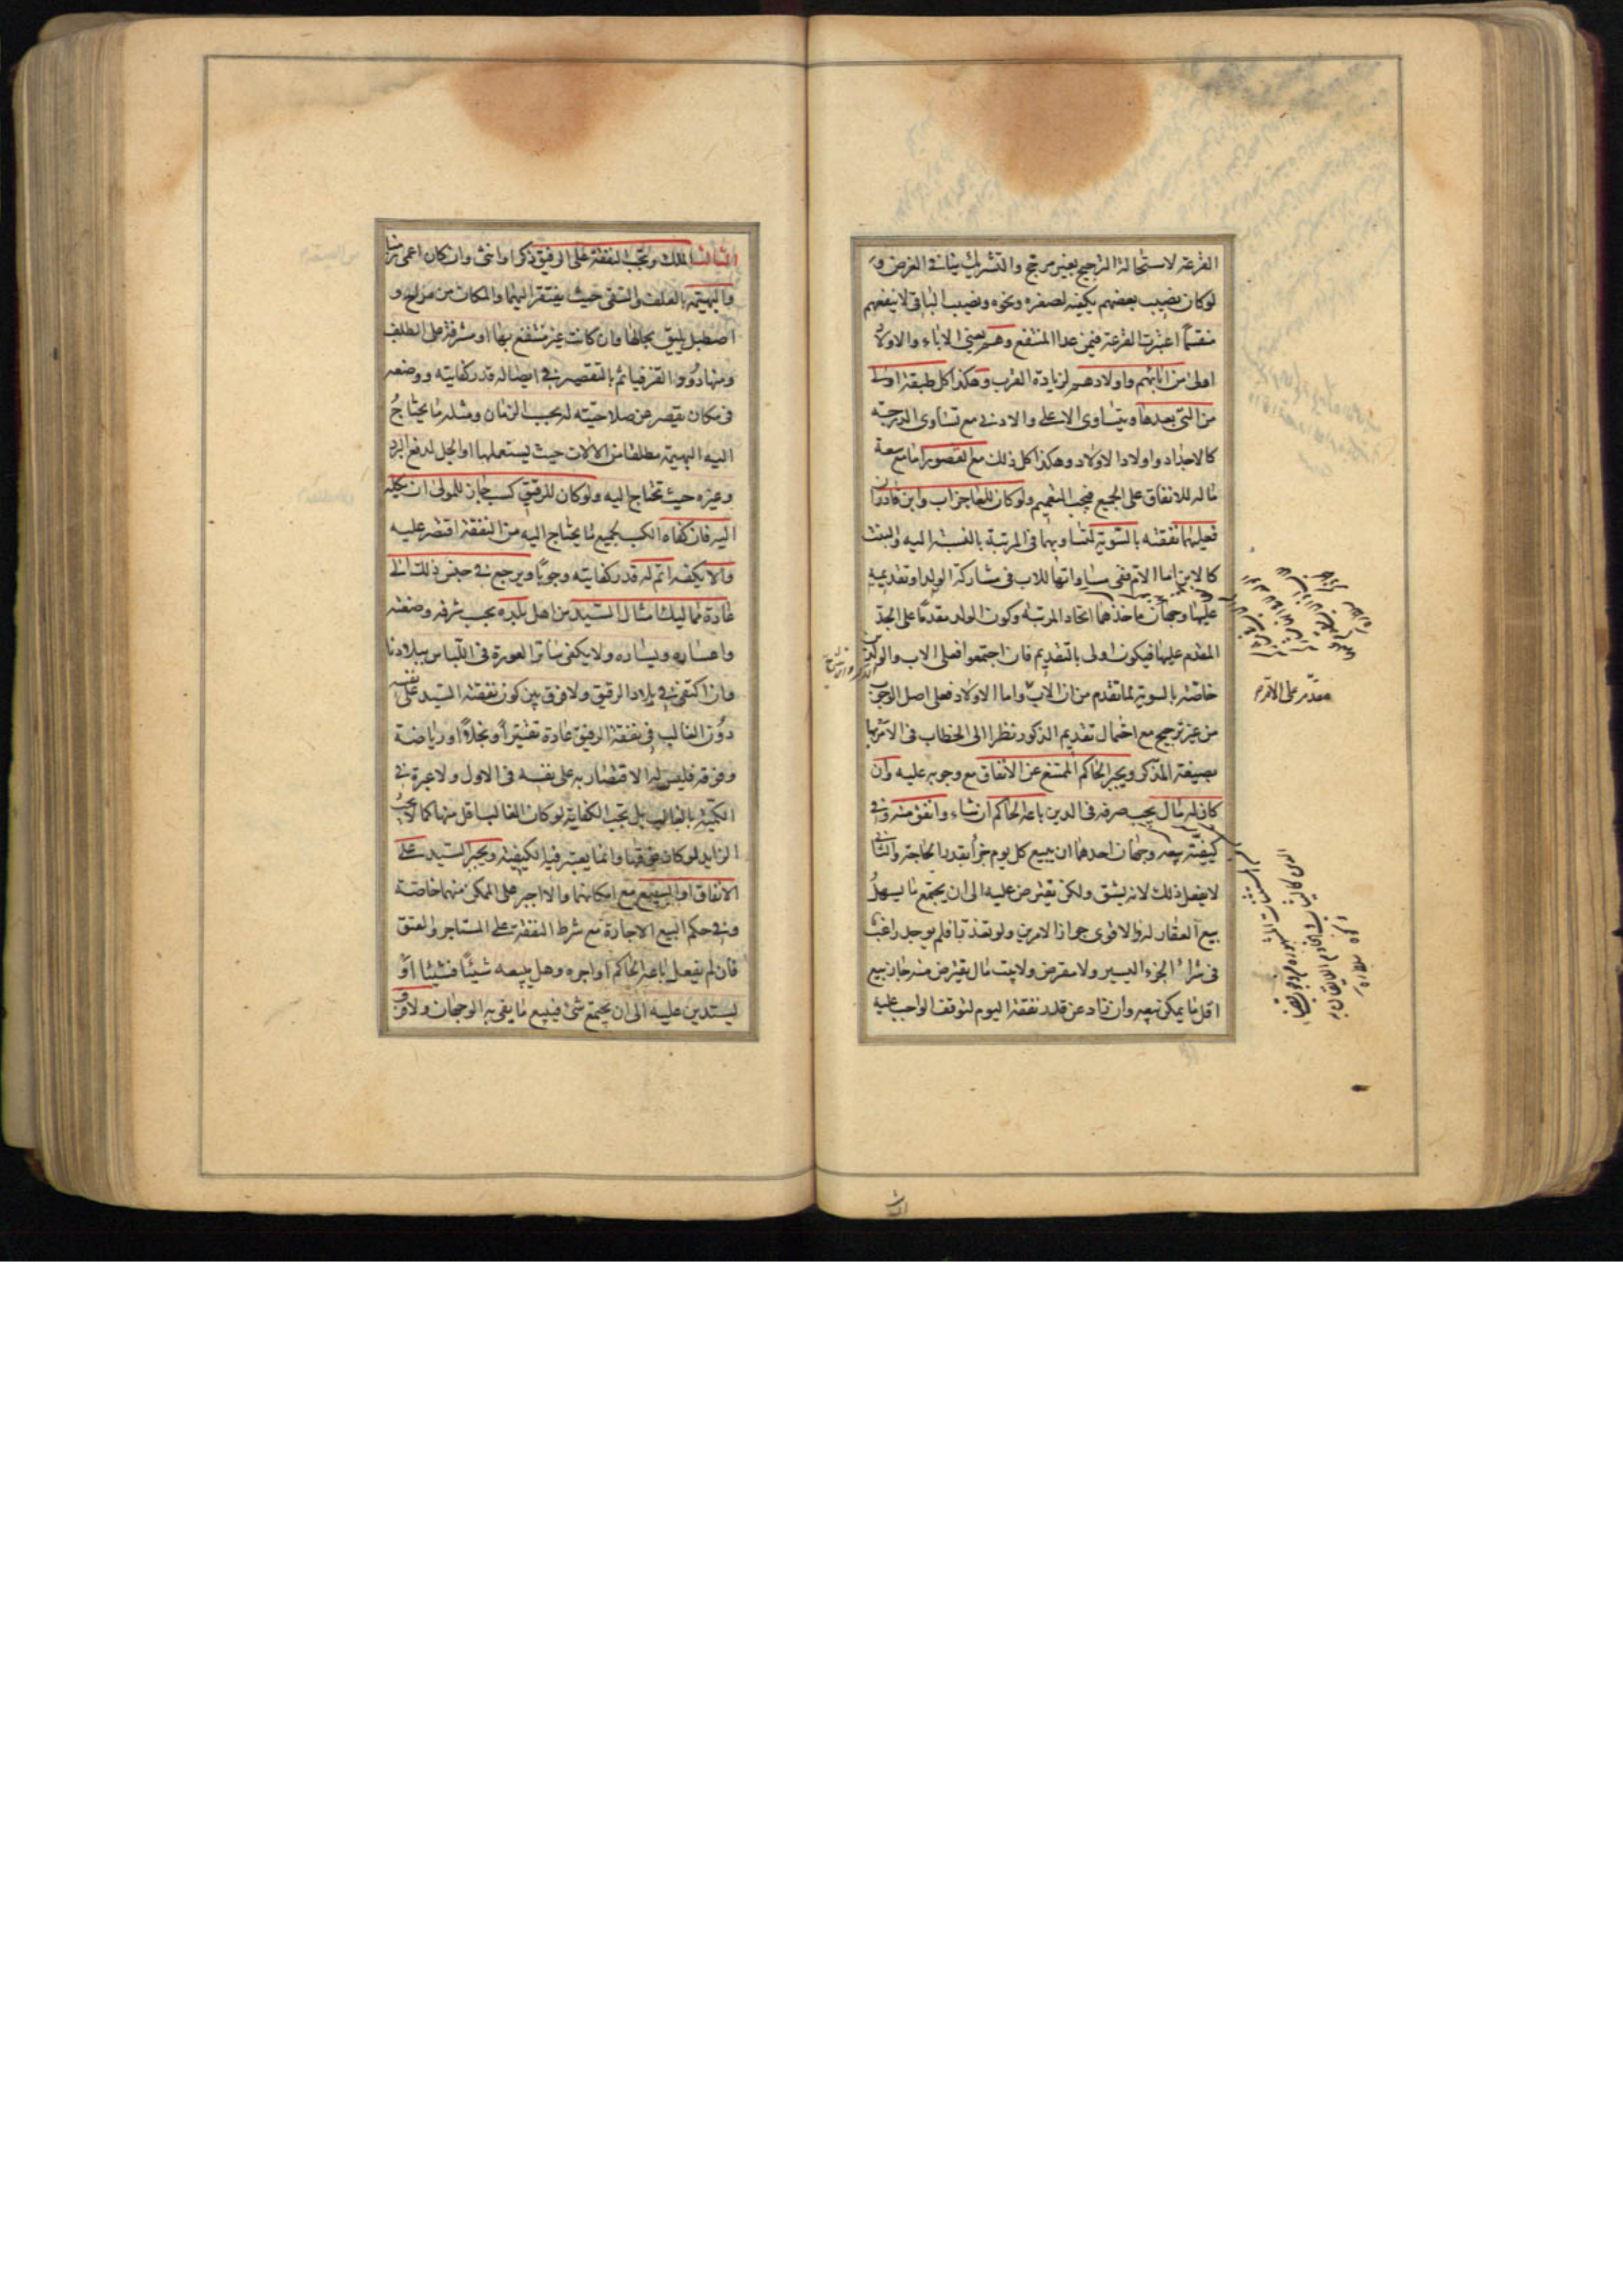 القرعة لاستحالة الترجيح بغير مرجح والتشريك ينافي الغرض و
لو كان نصيب بعضهم يكفيه لصغره ونحوه ونصيب الباقي لا ينفعهم
منقسماً اعتبرت القرعة فيمن عدا المنتفع وهم يعني الاباء والاولاد
اولى من ابائهم واولادهم لزيادة القرب وهكذا كل طبقة اولى
من التي بعدها ويتساوى الاعلى والادنى مع تساوى الدرجة
كالاجداد واولاد الاولاد وهكذا كل ذلك مع القصور اما مع سعة
ماله للانفاق على الجميع فيجب التعميم ولو كان للعاجز اب وابن قادران
فعليهما نفقته بالسوية لتساويهما في المرتبة بالنسبة اليه والبنت
كالابن اما الام ففي مساواتها للاب في مشاركة الولد او تقديمه
عليها وجهان ماخذهما اتحاد المرتبة وكون الولد مقدماً على الجد
المقدم عليها فيكون اولى بالتقديم فان اجتمعوا فعلى الاب والولد
خاصة بالسوية لما تقدم من ان الاب واما الاولاد فعلى اصل الوجوب
من غير ترجيح مع احتمال تقديم الذكور نظرا الى الخطاب في الامر بها
بصيغة المذكر ويجبر الحاكم الممتنع عن الانفاق مع وجوبه عليه وان
كان له مال يجب صرفه في الدين باعه الحاكم ان شاء وانفق منه وفي
كيفية بيعه وجهان احدهما ان يبيع كل يوم جزأ بقدر الحاجة والثاني
لا يفعل ذلك لانه يشق ولكن يقترض عليه الى ان يجتمع ما يسهل
بيع العقار له والاقوى جواز الامرين ولو تعذرا فلم يوجد راغب
في شراء الجزء اليسير ولا مقرض ولا بيت مال يقترض منه جاز بيع
اقل ما يمكن بيعه وان زاد عن قدر نفقة اليوم لتوقف الواجب عليه
مقدم على الاقرب
الثالث
الثالث الملك وتجب النفقة على الرقيق ذكرا وانثى وان كان اعمى زمنا
والبهيمة بالعلف والسقي حيث يفتقر اليهما والمكان من مراح و
اصطبل يليق بحالها وان كانت غير منتفع بها او مشرفة على التلف
ومنها دود القز فياثم بالتقصير في ايصاله قدر كفايته ووضعه
في مكان يقصر عن صلاحيته له بحسب الزمان ومثله ما يحتاج
اليه البهيمة مطلقا من الالات حيث يستعملها او الجل لدفع البرد
وغيره حيث تحتاج اليه ولو كان للرقيق كسب جاز للمولى ان يكله
اليه فان كفاه الكسب بجميع ما يحتاج اليه من النفقة اقتصر عليه
والا يكفه اتم له قدر كفايته وجوباً ويرجع في جنس ذلك الى
عادة مماليك امثال السيد من اهل بلده بحسب شرفه وضعته
واعساره ويساره ولا يكفي ساتر العورة في اللباس ببلادنا
وان اكتفي به في بلاد الرقيق ولا فرق بين كون نفقة السيد على نفسه
دون الغالب في نفقة الرقيق عادة تقتيراً او بخلاً او رياضة
وفوقه فليس له الاقتصار به على نفسه في الاول ولا عبرة في
الكمية بالغالب بل تجب الكفاية لو كان الغالب اقل منها كما لا يجب
الزايد لو كان فوقها وانما يعتبر فيه الكيفية ويجبر السيد على
الانفاق او البيع مع امكانهما والا اجبر على الممكن منهما خاصة
وفي حكم البيع الاجارة مع شرط النفقة على المستاجر والعتق
فان لم يفعل باعه الحاكم او اجره وهل يبيعه شيئاً فشيئا او
يستدين عليه الى ان يجتمع شئ فيبيع ما يفي به الوجهان ولا فرق